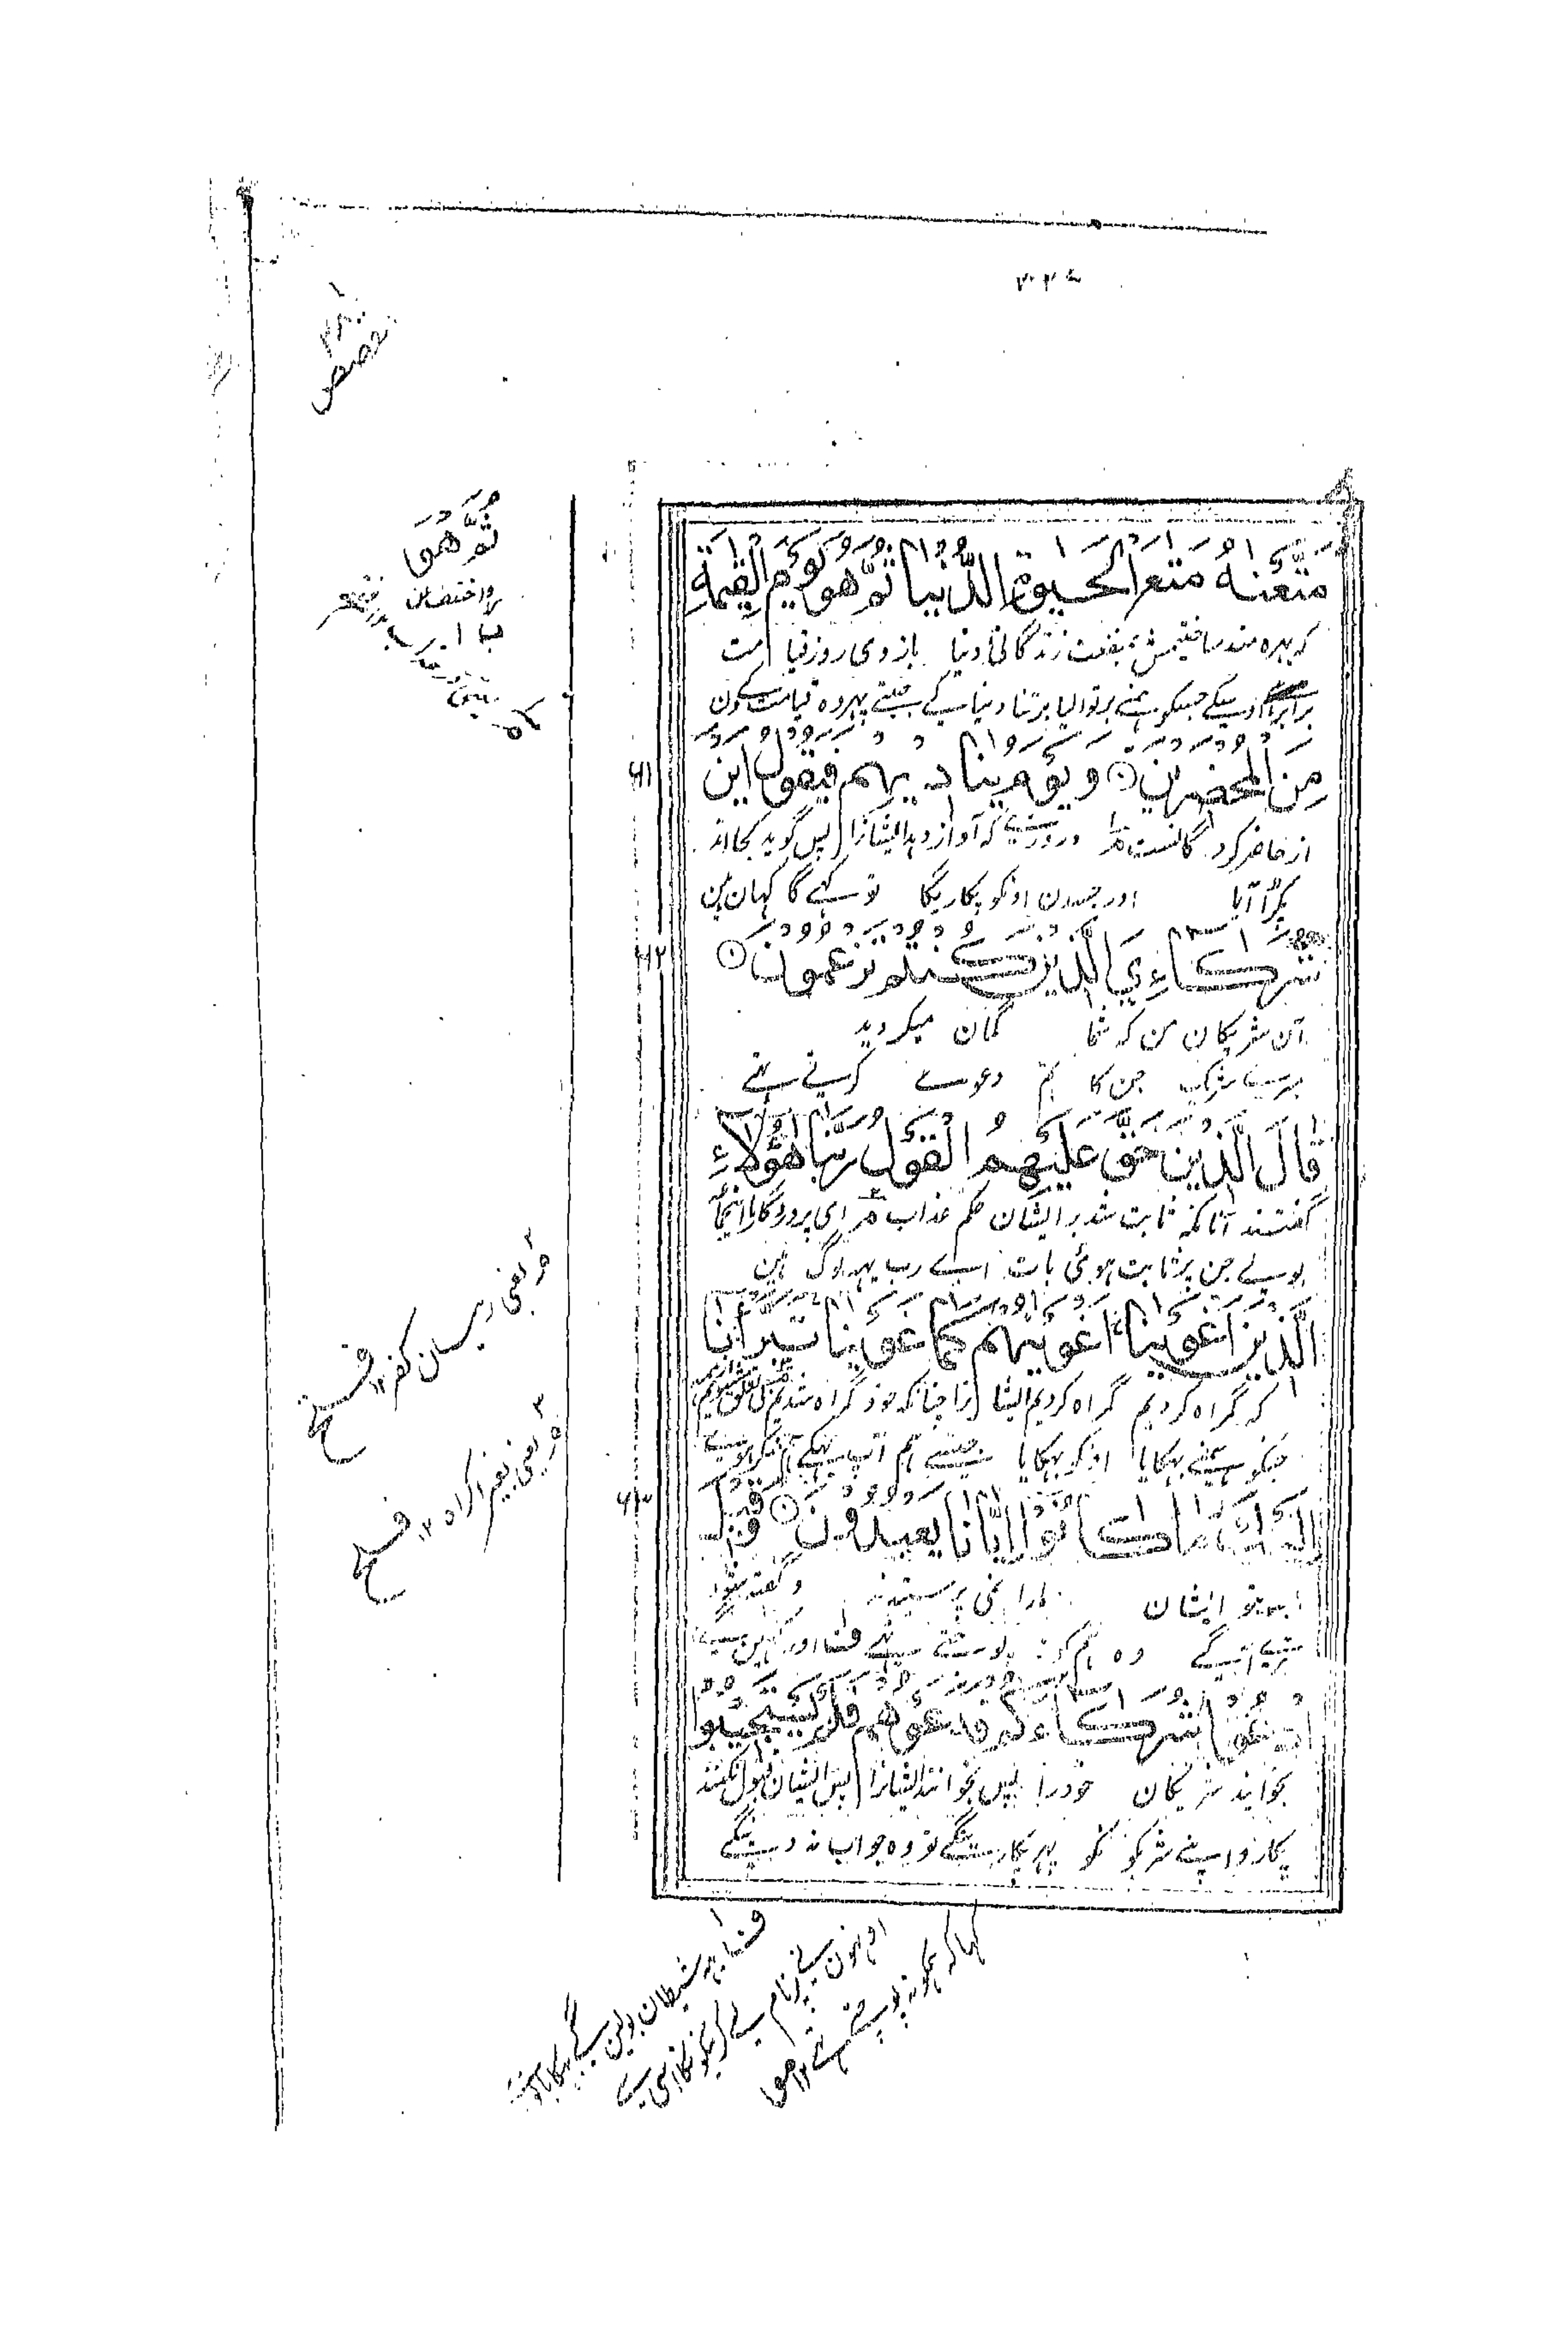 قصص
مَتَّعْنٰهُ مَتَاعَ الْحَيٰوةِ الدُّنْيَا ثُمَّ هُوَ يَوْمَ الْقِيٰمَةِ
که بهره مند ساختیمش بمنفعت زندگانی دنیا باز وی روز قیامت
جسکو ہمنے برتوالیا برتنا دنیا کے جیتے پہر وہ قیامت کے دن
مِنَ الْمُحْضَرِيْنَ ۞ وَيَوْمَ يُنَادِيْهِمْ فَيَقُوْلُ اَيْنَ
۶۱
از حاضر کرد گانست و روزی که آواز دهد ایشانرا پس گوید کجا اند
پکڑا آیا اور جسدن اونکو پکاریگا تو کہے گا کہان ہین
شُرَكَآءِيَ الَّذِيْنَ كُنْتُمْ تَزْعُمُوْنَ ۞
۶۲
آن شریکان من که شما گمان میکردید
میرے شریک جن کا تم دعوے کرتے تہے
قَالَ الَّذِيْنَ حَقَّ عَلَيْهِمُ الْقَوْلُ رَبَّنَا هٰٓؤُلَآءِ
گفتند آنانکه ثابت شد بر ایشان حکم عذاب ای پروردگار ما
بولے جن پر ثابت ہوئی بات اے رب یہہ لوگ ہین
الَّذِيْنَ اَغْوَيْنَا اَغْوَيْنٰهُمْ كَمَا غَوَيْنَا تَبَرَّاْنَا
که گمراه کردیم گمراه کردیم ایشانرا چنانکه خود گمراه شدیم
جنکو ہمنے بہکایا اونکو بہکایا جیسے ہم آپ بہکے ہم منکر ہوئے
اِلَيْكَ مَا كَانُوْا اِيَّانَا يَعْبُدُوْنَ ۞ وَقِيْلَ
۶۳
بسوی تو ایشان مارا نمی پرستیدند و گفته شود
تیرے آگے وہ ہم کو نہ پوجتے تہے ف اور کہین گے
ادْعُوْا شُرَكَآءَكُمْ فَدَعَوْهُمْ فَلَمْ يَسْتَجِيْبُوْا
بخوانید شریکان خودرا پس بخوانند ایشانرا پس ایشان قبول نکنند
پکارو اپنے شریکو نکو پہر پکارینگے تو وہ جواب نہ دینگے
ثُمَّ هُوَ
یعنی رئیسان کفر ۱۲ فتح
یعنی بغیر اکراه ۱۲ فتح
ف یہہ شیطان بولین گے بہکایا تو
اونہون نے پر نام لے کر نیکو نکا اسی سے
کہا کہ ہمکو نہ پوجتے تہے ۱۲ مو